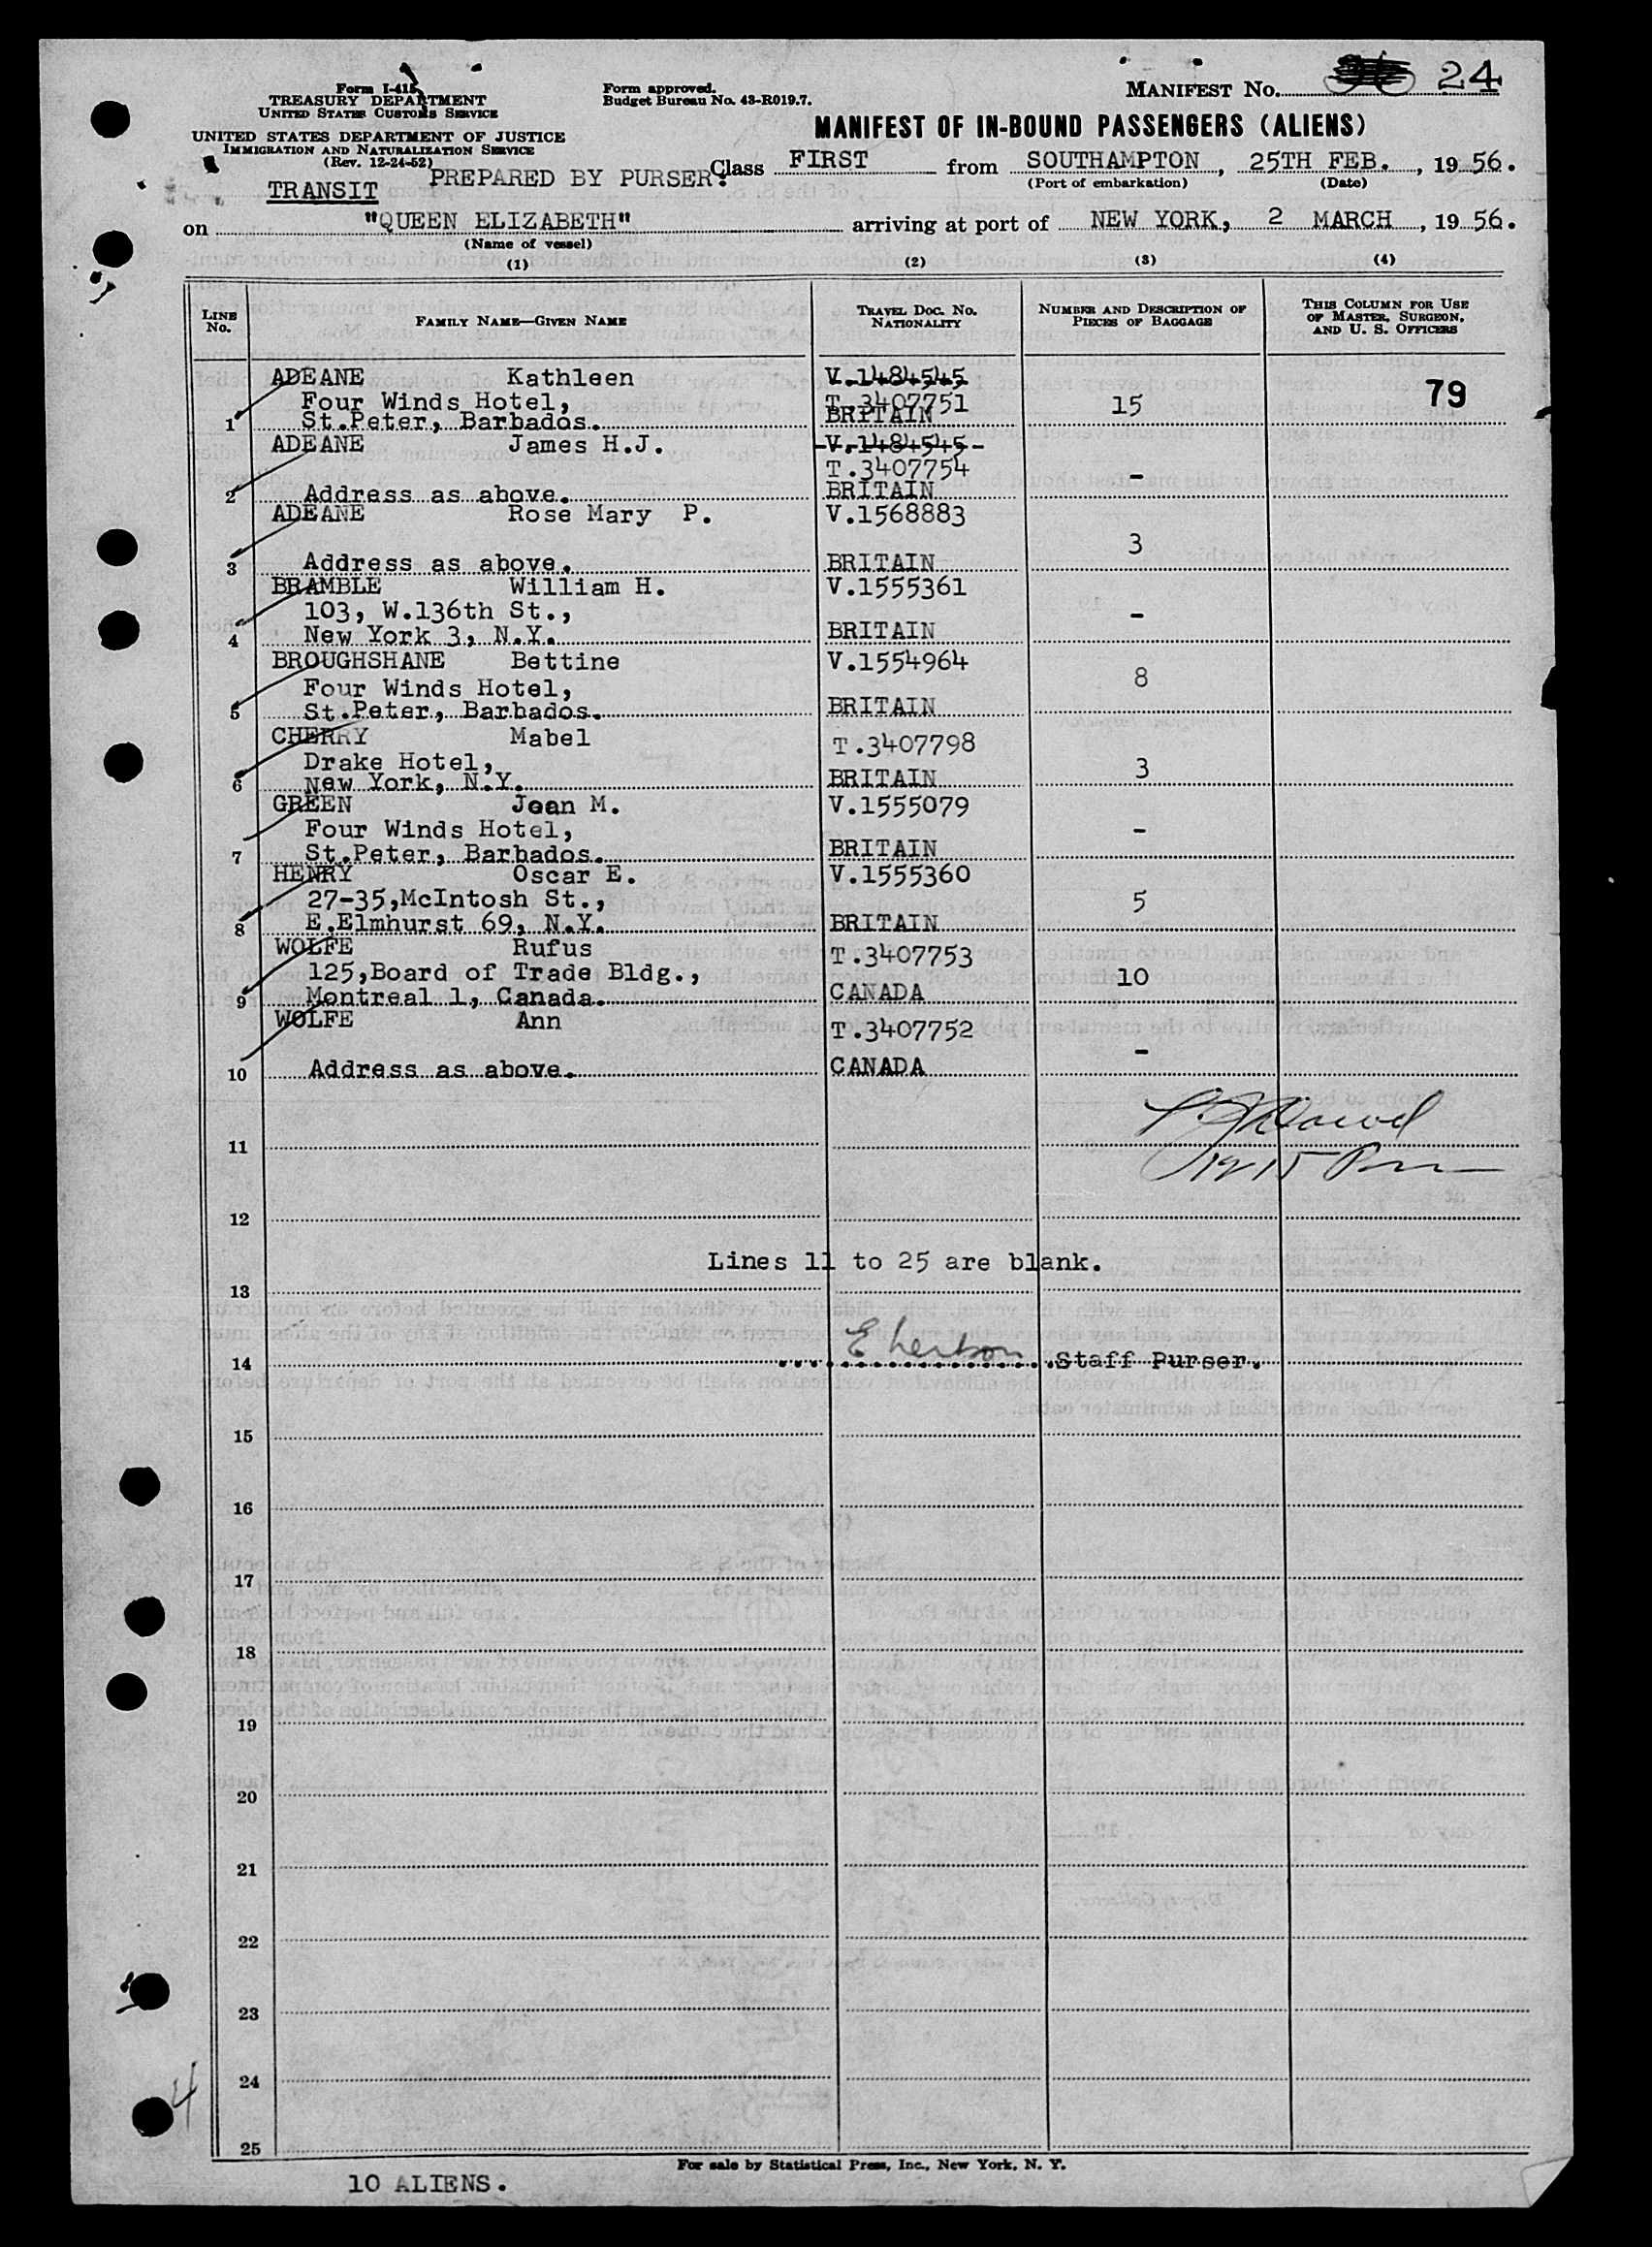 Form I-415
TREASURY DEPARTMENT
UNITED STATES CUSTOMS SERVICE
UNITED STATES DEPARTMENT OF JUSTICE
IMMIGRATION AND NATURALIZATION SERVICE
(Rev. 12-24-52)
Form approved.
Budget Bureau No. 43-R019.7.
MANIFEST No. 24
MANIFEST OF IN-BOUND PASSENGERS (ALIENS)
TRANSIT PREPARED BY PURSER. Class FIRST from SOUTHAMPTON, 25TH FEB., 19 56.
(Port of embarkation) (Date)
on "QUEEN ELIZABETH" arriving at port of NEW YORK, 2 MARCH, 19 56.
(Name of vessel)
(1) (2) (3) (4)
LINE No. FAMILY NAME—GIVEN NAME TRAVEL DOC. No. NATIONALITY NUMBER AND DESCRIPTION OF PIECES OF BAGGAGE THIS COLUMN FOR USE OF MASTER, SURGEON, AND U. S. OFFICERS
ADEANE Kathleen V.1484545
Four Winds Hotel, T.3407751 15 79
1 St.Peter, Barbados. BRITAIN
ADEANE James H.J. V.1484545
T.3407754 -
2 Address as above. BRITAIN
ADEANE Rose Mary P. V.1568883
3
3 Address as above. BRITAIN
BRAMBLE William H. V.1555361
103, W.136th St., -
4 New York 3, N.Y. BRITAIN
BROUGHSHANE Bettine V.1554964
Four Winds Hotel, 8
5 St.Peter, Barbados. BRITAIN
CHERRY Mabel T.3407798
Drake Hotel, 3
6 New York, N.Y. BRITAIN
GREEN Jean M. V.1555079
Four Winds Hotel, -
7 St.Peter, Barbados. BRITAIN
HENRY Oscar E. V.1555360
27-35,McIntosh St., 5
8 E.Elmhurst 69, N.Y. BRITAIN
WOLFE Rufus T.3407753
125,Board of Trade Bldg., 10
9 Montreal 1, Canada. CANADA
WOLFE Ann T.3407752
-
10 Address as above. CANADA
11
12
Lines 11 to 25 are blank.
13
14 Staff Purser.
15
16
17
18
19
20
21
22
23
24
4
25
For sale by Statistical Press, Inc., New York, N. Y.
10 ALIENS.